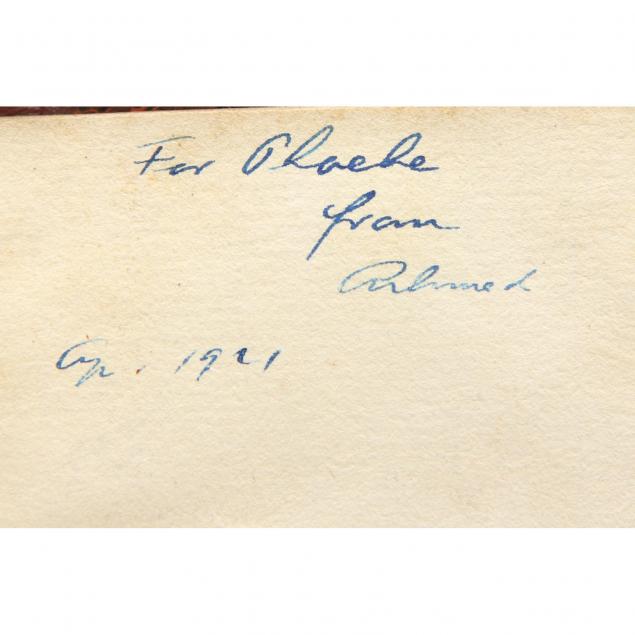 For Phoebe
from
Ap. 1921